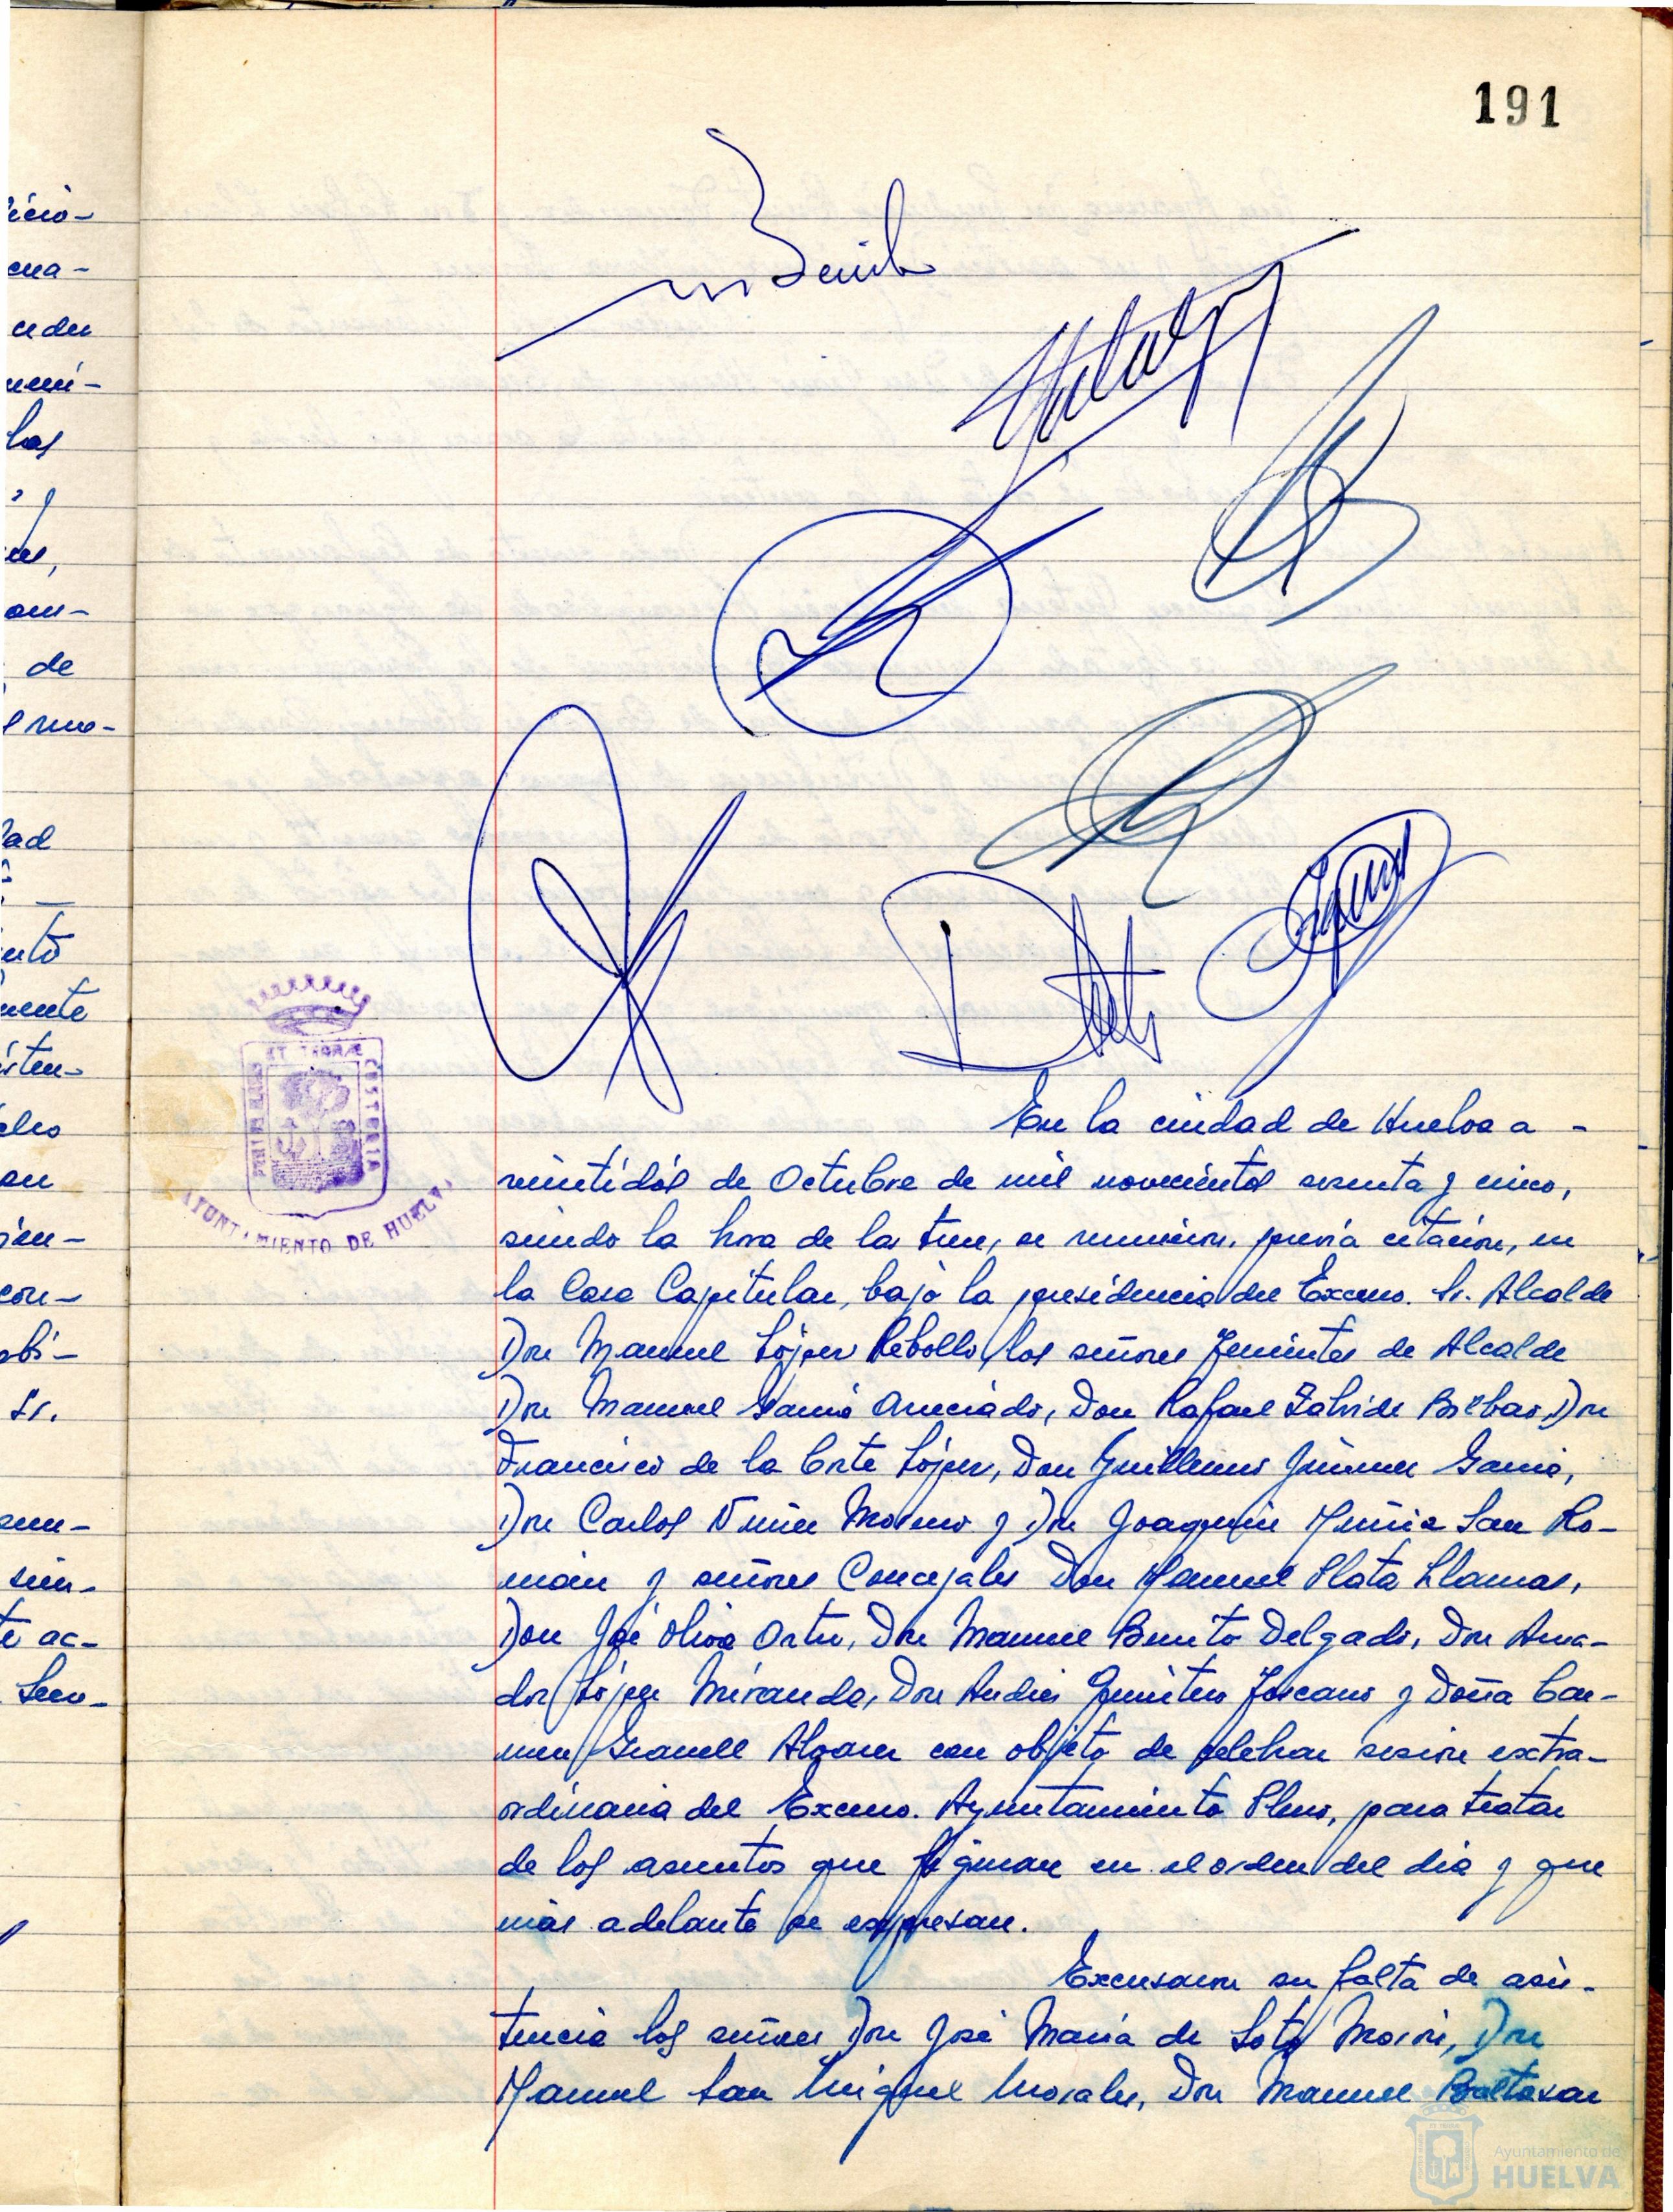 191
icio-
cua-
los
de
dad
mente
con-
Sr.
te ac-
ET TERRAE
PORTUS MARIS
CUSTODIA
AYUNTAMIENTO DE HUELVA
En la ciudad de Huelva a -
veintidós de Octubre de mil novecientos sesenta y cinco,
siendo la hora de las trece, se reunieron, previa citación, en
la Casa Capitular, bajo la presidencia del Excmo. Sr. Alcalde
Don Manuel López Rebollo, los señores Tenientes de Alcalde
Don Manuel García Don Rafael Bilbao, Don
Francisco de la Corte López, Don Guillermo Jiménez García,
Don Carlos Núñez Moreno y Don Joaquín Muñiz San Ro-
mán y señores Concejales Don Manuel Plata Llamas,
Don José Oliva Don Manuel Benito Delgado, Don Ama-
dor López Miranda, Don Andrés Quintero Toscano y Doña Car-
men Granell Alvarez con objeto de celebrar sesión extra-
ordinaria del Excmo. Ayuntamiento Pleno, para tratar
de los asuntos que figuran en el orden del día y que
más adelante se expresan.
Excusaron su falta de asis-
tencia los señores Don José María de Soto Morón, Don
Manuel San Miguel Morales, Don Manuel Baltasar
Ayuntamiento de
HUELVA